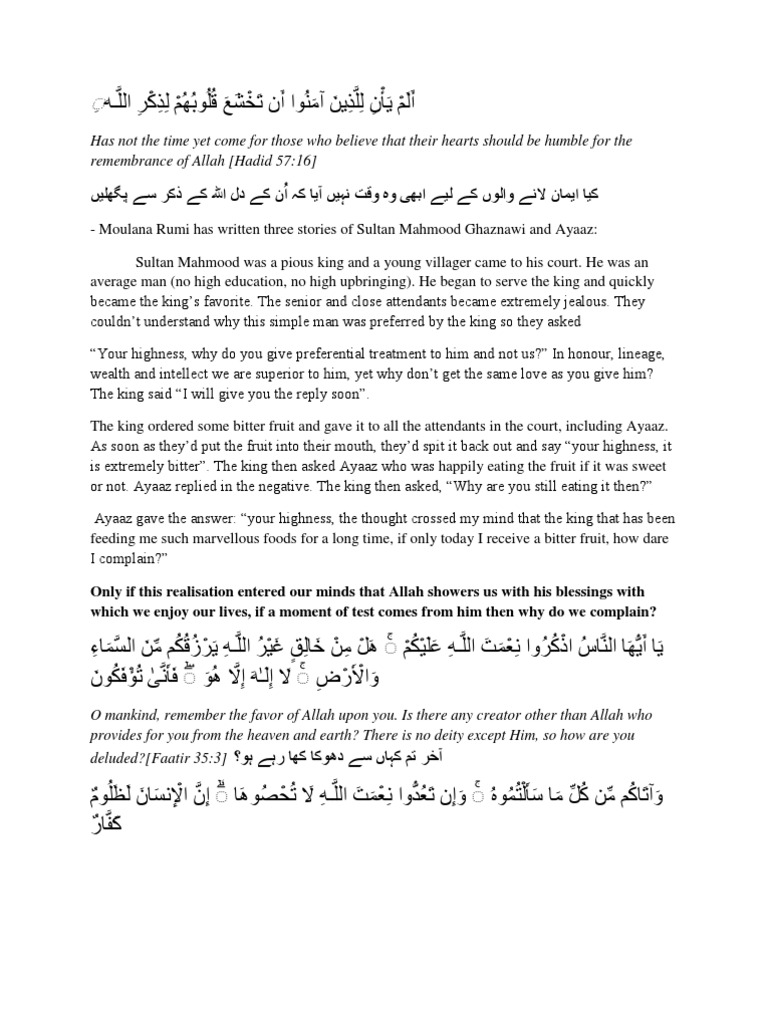 أَلَمْ يَأْنِ لِلَّذِينَ آمَنُوا أَن تَخْشَعَ قُلُوبُهُمْ لِذِكْرِ اللَّـهِ
Has not the time yet come for those who believe that their hearts should be humble for the
remembrance of Allah [Hadid 57:16]
کیا ایمان لانے والوں کے لیے ابھی وہ وقت نہیں آیا کہ اُن کے دل اللہ کے ذکر سے پگھلیں
- Moulana Rumi has written three stories of Sultan Mahmood Ghaznawi and Ayaaz:
Sultan Mahmood was a pious king and a young villager came to his court. He was an
average man (no high education, no high upbringing). He began to serve the king and quickly
became the king's favorite. The senior and close attendants became extremely jealous. They
couldn't understand why this simple man was preferred by the king so they asked
“Your highness, why do you give preferential treatment to him and not us?” In honour, lineage,
wealth and intellect we are superior to him, yet why don't get the same love as you give him?
The king said “I will give you the reply soon”.
The king ordered some bitter fruit and gave it to all the attendants in the court, including Ayaaz.
As soon as they'd put the fruit into their mouth, they'd spit it back out and say “your highness, it
is extremely bitter”. The king then asked Ayaaz who was happily eating the fruit if it was sweet
or not. Ayaaz replied in the negative. The king then asked, “Why are you still eating it then?”
Ayaaz gave the answer: “your highness, the thought crossed my mind that the king that has been
feeding me such marvellous foods for a long time, if only today I receive a bitter fruit, how dare
I complain?”
Only if this realisation entered our minds that Allah showers us with his blessings with
which we enjoy our lives, if a moment of test comes from him then why do we complain?
يَا أَيُّهَا النَّاسُ اذْكُرُوا نِعْمَتَ اللَّـهِ عَلَيْكُمْ ۚ هَلْ مِنْ خَالِقٍ غَيْرُ اللَّـهِ يَرْزُقُكُم مِّنَ السَّمَاءِ
وَالْأَرْضِ ۚ لَا إِلَـٰهَ إِلَّا هُوَ ۖ فَأَنَّىٰ تُؤْفَكُونَ
O mankind, remember the favor of Allah upon you. Is there any creator other than Allah who
provides for you from the heaven and earth? There is no deity except Him, so how are you
deluded?[Faatir 35:3] آخر تم کہاں سے دھوکا کھا رہے ہو؟
وَآتَاكُم مِّن كُلِّ مَا سَأَلْتُمُوهُ ۚ وَإِن تَعُدُّوا نِعْمَتَ اللَّـهِ لَا تُحْصُوهَا ۗ إِنَّ الْإِنسَانَ لَظَلُومٌ
كَفَّارٌ